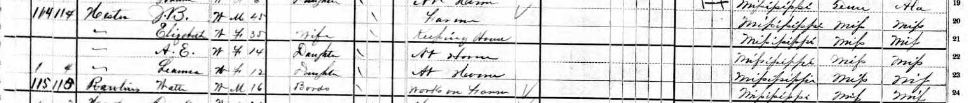 At Home
114 114 Hester J. B. W M 45 Farmer Mississippi Tenn Ala 20
" Elizabeth W F 35 Wife Keeping House Mississippi Miss Miss 21
" A. E. W F 14 Daughter At Home Mississippi Miss Miss 22
" W F 12 Daughter At Home Mississippi Miss Miss 23
115 115 Rawlins Walter W M 16 Works on Farm Mississippi Miss Miss 24